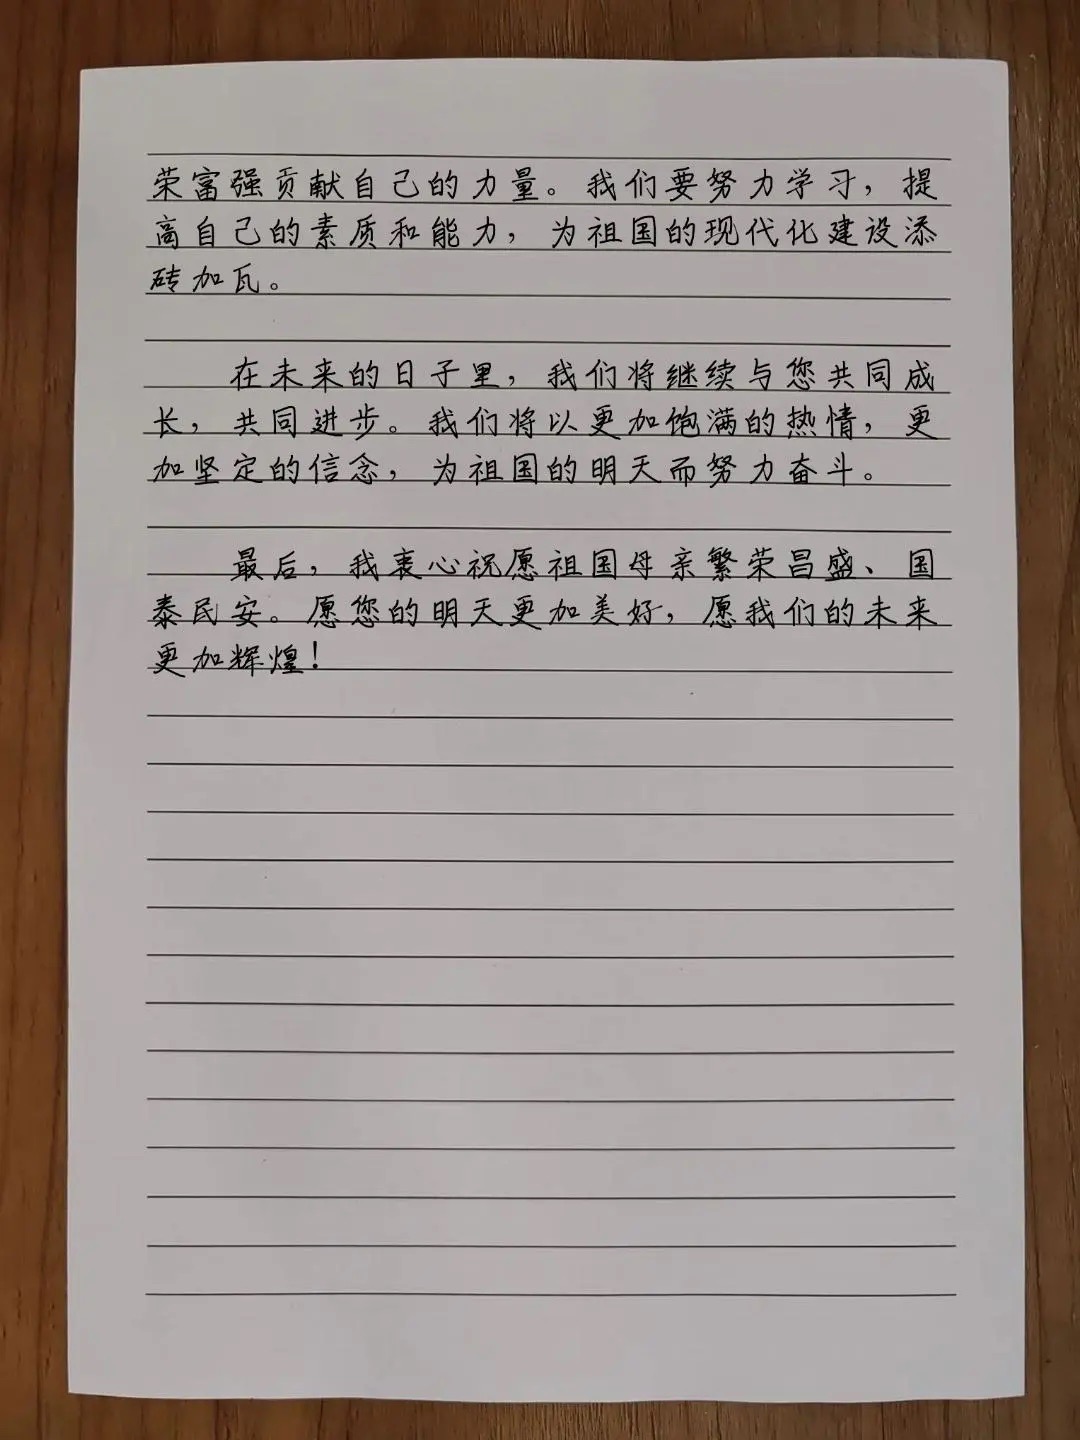 荣富强贡献自己的力量。我们要努力学习，提
高自己的素质和能力，为祖国的现代化建设添
砖加瓦。
在未来的日子里，我们将继续与您共同成
长，共同进步。我们将以更加饱满的热情，更
加坚定的信念，为祖国的明天而努力奋斗。
最后，我衷心祝愿祖国母亲繁荣昌盛、国
泰民安。愿您的明天更加美好，愿我们的未来
更加辉煌！